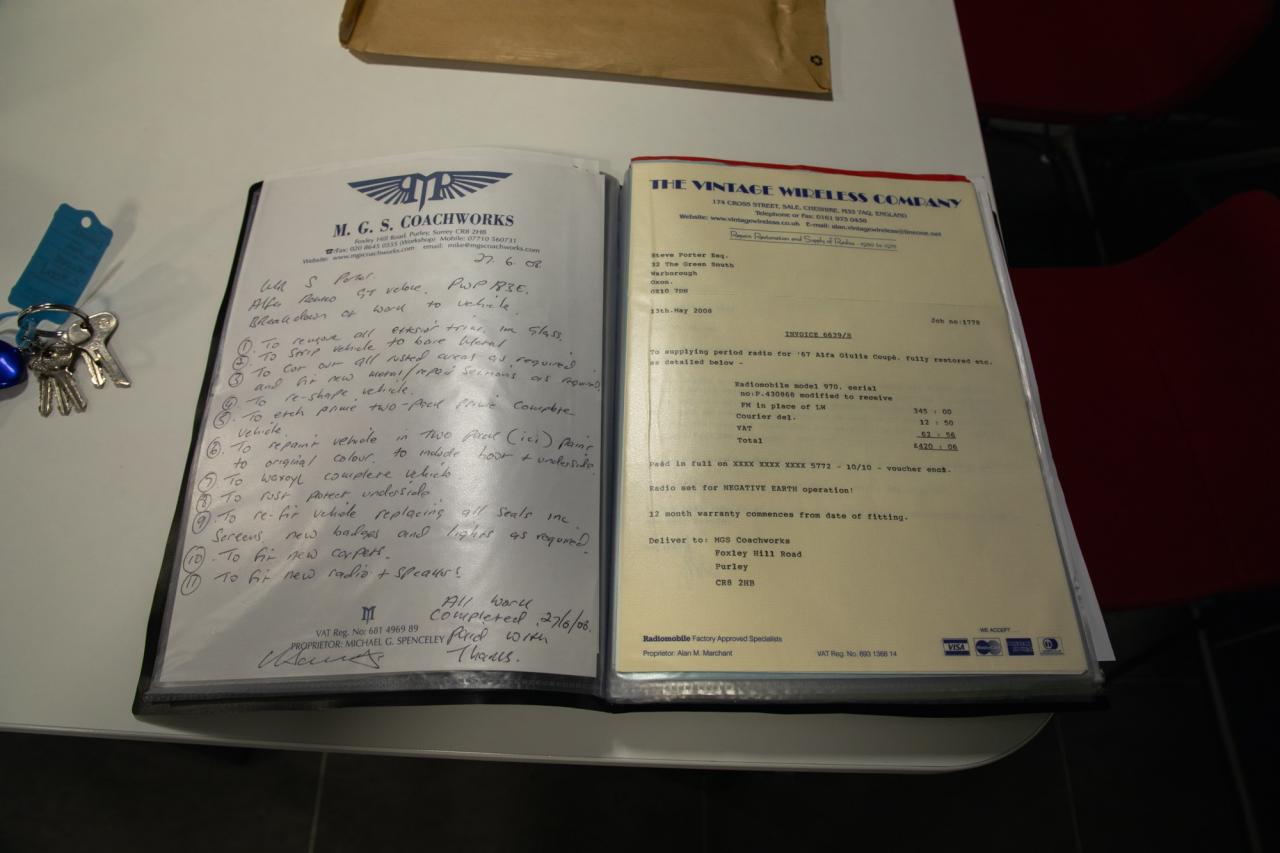 M. G. S. COACHWORKS
Foxley Hill Road, Purley, Surrey CR8 2HB
☎/Fax: 020 8645 0555 (Workshop) Mobile: 07710 560731
Website: www.mgscoachworks.com email: mike@mgscoachworks.com
27.6.08.
Mr S Porter.
Alfa Romeo GT Veloce. PWP 183E.
Breakdown of work to vehicle.
① To remove all exterior trim, inc glass.
② To strip vehicle to bare metal
③ To cut out all rusted areas as required
and fit new metal/repair sections as required
④ To re-shape vehicle.
⑤ To etch prime two-pack prime complete
vehicle.
⑥ To repaint vehicle in two pack (ici) paint
to original colour. to include boot + underside.
⑦ To waxoyl complete vehicle
⑧ To rust protect underside
⑨ To re-fit vehicle replacing all seals inc
screens, new badges and lights as required.
⑩ To fit new carpets.
⑪ To fit new radio + speakers.
All work
completed 27/6/08.
Paid with
Thanks.
VAT Reg. No: 681 4969 89
PROPRIETOR: MICHAEL G. SPENCELEY
THE VINTAGE WIRELESS COMPANY
174 CROSS STREET, SALE, CHESHIRE, M33 7AQ, ENGLAND
Telephone or Fax: 0161 973 0438
Website: www.vintagewireless.co.uk E-mail: alan.vintagewireless@timeone.net
Repair Restoration and Supply of Radios - 1920 to 1970
Steve Porter Esq.
12 The Green South
Warborough
Oxon.
OX10 7DN
13th-May 2008
Job no:1778
INVOICE 6639/S
To supplying period radio for '67 Alfa Giulia Coupé. fully restored etc.
as detailed below -
Radiomobile model 970. serial
no:P.430868 modified to receive
FM in place of LW
345 : 00
Courier del.
12 : 50
VAT
62 : 56
Total
£420 : 06
Paid in full on XXXX XXXX XXXX 5772 - 10/10 - voucher encl.
Radio set for NEGATIVE EARTH operation!
12 month warranty commences from date of fitting.
Deliver to: MGS Coachworks
Foxley Hill Road
Purley
CR8 2HB
WE ACCEPT
Radiomobile Factory Approved Specialists
VISA
Proprietor: Alan M. Marchant
VAT Reg. No: 693 1366 14